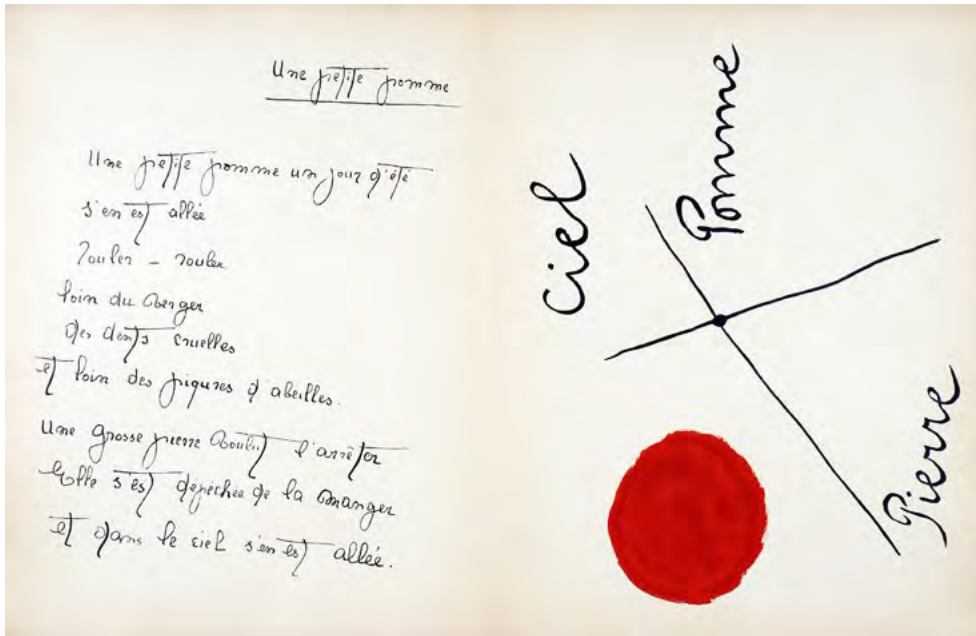 Une petite pomme
Une petite pomme un jour d'été
s'en est allée
rouler - rouler
loin du verger
des dents cruelles
et loin des piqures d'abeilles.
Une grosse pierre voulut l'arrêter
Elle s'est dépêchée de la manger
et dans le ciel s'en est allée.
Ciel
Pomme
Pierre